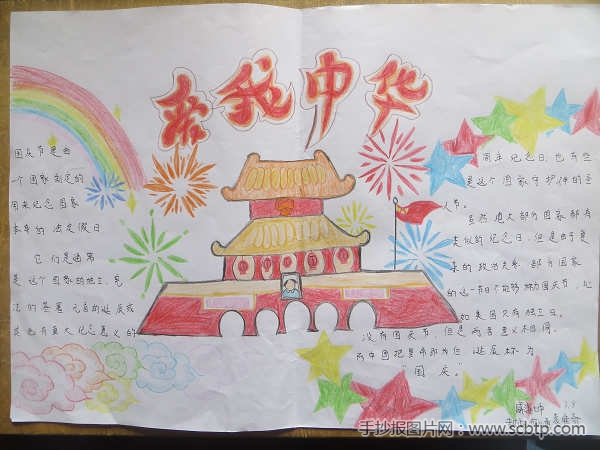 爱我中华
国庆节是由
一个国家制定的
用来纪念国家
本身的法定假日
它们通常
是这个国家的独立、宪
法的签署、元首的诞辰或
其他有重大纪念意义的
周年纪念日,也有些
是这个国家守护神的圣
人节。
虽然绝大部分国家都有
类似的纪念日,但是由于复
杂的政治关系,部分国家
的这一节日不能够称为国庆节,比
如美国只有独立日。
没有国庆节 但是两者意义相同。
而中国
诞辰称为
"国庆。"
手抄报图片网:www.scbtp.com